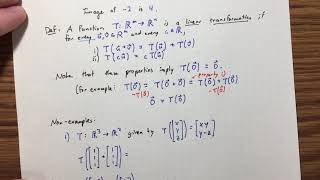 Image of -2 is 4.
Def: A function T: ℝⁿ → ℝᵐ is a linear transformation if
for every u⃗, v⃗ ∈ ℝⁿ and every c ∈ ℝ,
i) T(u⃗ + v⃗) = T(u⃗) + T(v⃗)
ii) T(c u⃗) = c T(u⃗)
Note that these properties imply T(0⃗) = 0⃗.
property i)
(For example: T(0⃗) = T(0⃗ + 0⃗) = T(0⃗) + T(0⃗)
-T(0⃗) -T(0⃗)
0⃗ = T(0⃗)
Non-examples:
1) T: ℝ³ → ℝ² given by T([x y z]) = [xy y-z]
T([1 1 1] + [1 1 1]) =